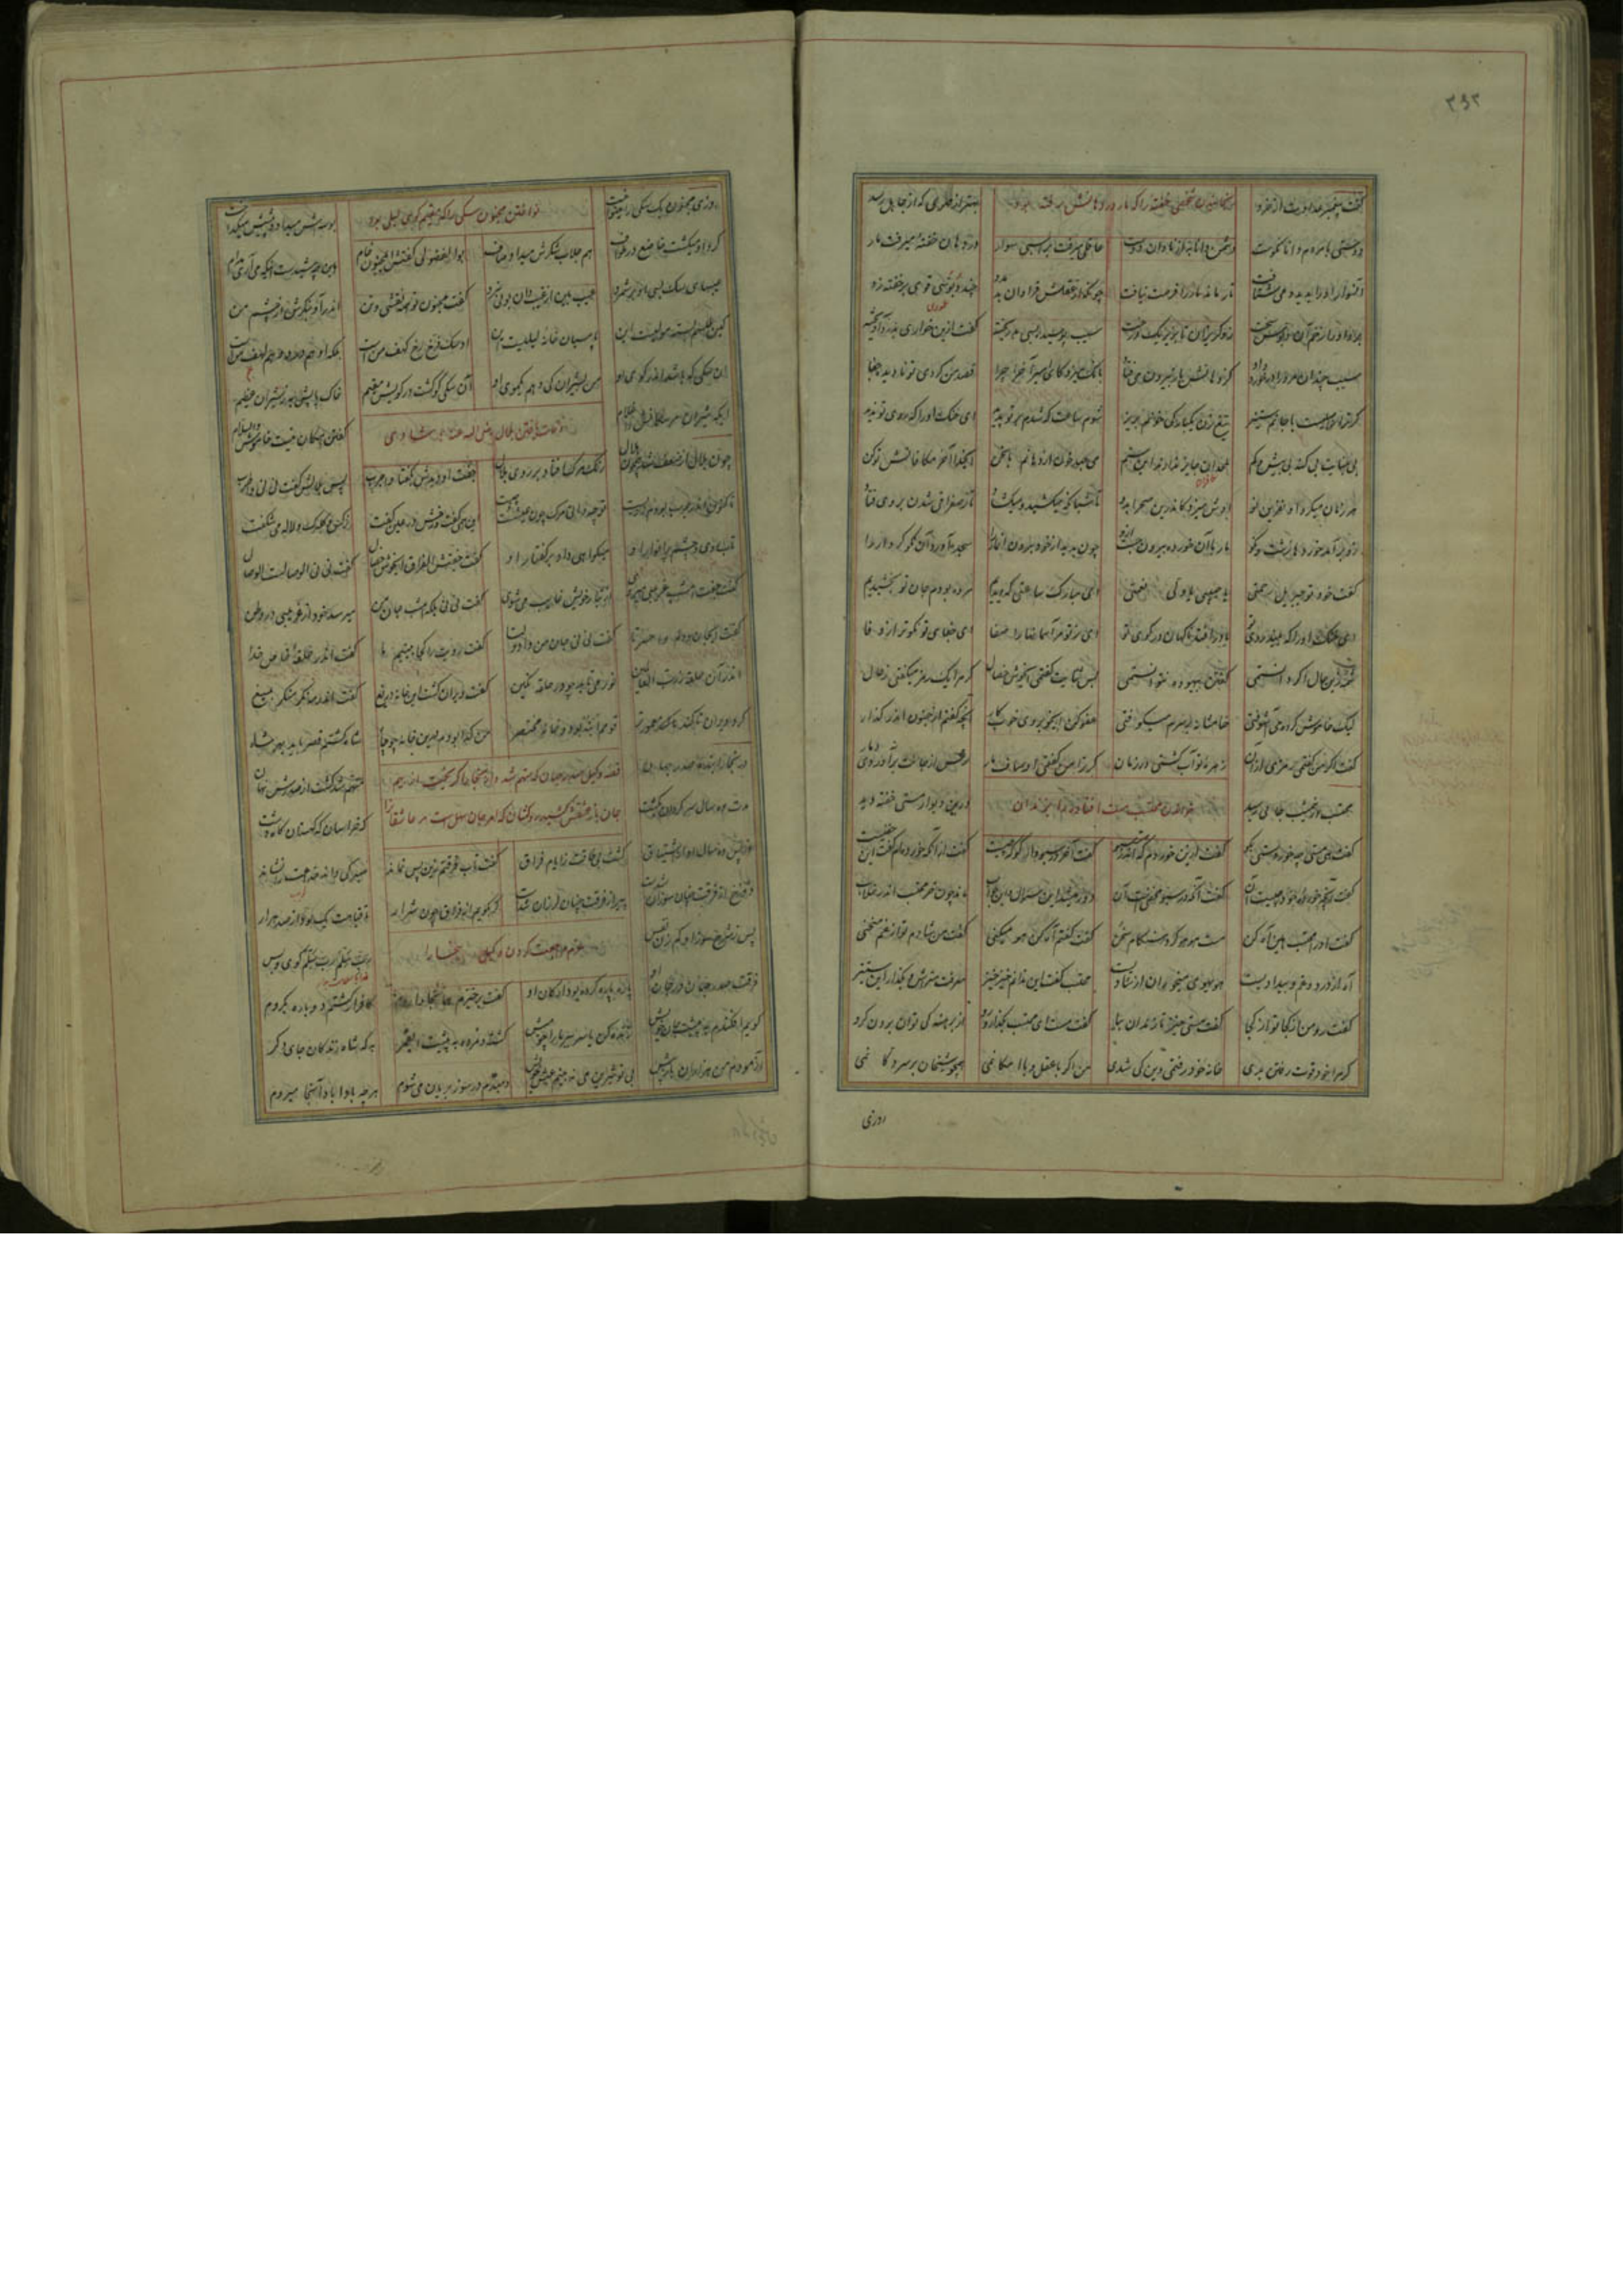 ۳۹۲
گفت پیغمبر عداوت از خرد بهتر از مهری که از جاهل رسد
دوستی با مردم دانا نکوست دشمن دانا به از نادان دوست عاقلی میرفت بر اسبی سوار در دهان خفته میرفت مار
آن سوار او را بدید و می شتافت تا رماند مار را فرصت نیافت چونکه از عقلش فراوان بد مدد چند دبوسی قوی بر خفته زد
برد او را زخم آن دبوس سخت زو گریزان تا بزیر یک درخت سیب پوسیده بسی بد ریخته گفت ازین خور ای بدرد آویخته
سیب چندان مرورا در خورد داد کز دهانش باز بیرون می فتاد بانک میزد کای امیر آخر چرا قصد من کردی تو نادیده جفا
گر ترا ز اصلست با جانم ستیز تیغ زن یکبارگی خونم بریز شوم ساعت که شدم بر تو پدید ای خنک او را که روی تو ندید
بی جنایت بی گنه بی بیش و کم ملحدان جایز ندارند این ستم می جهد خون از دهانم با سخن ای خدا آخر مکافاتش تو کن
هر زمان میکرد او نفرین نو اوش میزد کاندرین صحرا بدو تا شبانگه میکشید و میگشاد تا ز صفرا قی شدن بر وی فتاد
زو بر آمد خوردها زشت و نکو مار با آن خورده بیرون جست ازو چون بدید از خود برون آن مار را سجده آورد آن نکو کردار را
گفت خود تو جبرئیل رحمتی یا خدایی یا ولی نعمتی ای مبارک ساعتی که دیدیم مرده بودم جان نو بخشیدیم
ای خنک او را که بیند روی تو یا در افتد ناگهان در کوی تو
شمه زین حال اگر دانستمی گفتن بیهوده نتوانستمی بس ثنایت گفتمی ای خوش خصال گر مرا یک رمز میگفتی ز حال
لیک خامش کرده می آشوفتی خامشانه بر سرم میکوفتی عفو کن ای خوبروی خوب کار آنچه گفتم از جنون اندر گذار
گفت اگر من گفتمی رمزی ازان زهره تو آب گشتی در زمان گر ترا من گفتمی اوصاف مار ترس از جانت برآوردی دمار
خواندن محتسب مست افتاده را بزندان
محتسب در نیم شب جایی رسید در بن دیوار مستی خفته دید
گفت هی مستی چه خوردستی بگو گفت ازین خوردم که هست اندر سبو گفت آخر در سبو واگو که چیست گفت از آنکه خورده ام گفت این خفیست
گفت آنچه خورده خود چیست آن گفت آنکه در سبو مخفیست آن دور میشد این سؤال و این جواب ماند چون خر محتسب اندر خلاب
گفت او را محتسب هین آه کن مست هو هو کرد هنگام سخن گفت گفتم آه کن هو میکنی گفت من شادم تو از غم منحنی
آه از درد و غم و بیدادیست هوی هوی میخوران از شادیست محتسب گفت این ندانم خیز خیز معرفت متراش و بگذار این ستیز
گفت رو من از کجا تو از کجا گفت مستی خیز تا زندان بیا گفت مست ای محتسب بگذار و رو از برهنه کی توان بردن گرو
گر مرا خود قوت رفتن بدی خانه خود رفتمی وین کی شدی من اگر با عقل و با امکانمی همچو شیخان بر سر دکانمی
روزی
نواختن مجنون سگی را که مقیم کوی لیلی بود
روزی مجنون یک سگی را مینواخت بوسه اش میداد و پیشش میگداخت
گرد او میگشت خاضع در طواف هم جلاب شکرش میداد صاف بوالفضولی گفتش ای مجنون خام این چه شیدست اینکه می آری مدام
عیبهای سگ بسی او بر شمرد عیب بین از غیب دان بویی نبرد گفت مجنون تو همه نقشی و تن اندر آ و بنگرش از چشم من
کین طلسم بسته مولیست این پاسبان خانه لیلیست این او سگ فرخ رخ کهف منست بلکه او هم درد و هم لهف منست
آن سگی که باشد اندر کوی او من بشیران کی دهم یک موی او آن سگی کو گشت در کویش مقیم خاک پایش به ز شیران عظیم
ایکه شیران مر سگانش را غلام گفتن امکان نیست خامش والسلام
وفات یافتن بلال رضی الله عنه بشادی
چون بلال از ضعف شد همچون هلال رنگ مرگ افتاد بر روی بلال جفت او دیدش بگفتا وا حرب پس بلالش گفت نی نی وا طرب
تا کنون اندر حرب بودم ز زیست تو چه دانی مرگ چون عیشست و چیست این همی گفت و رخش در عین گفت نرگس و گلبرگ و لاله می شکفت
تاب روی و چشم پر انوار او میگواهی داد بر گفتار او گفت جفتش الفراق ای خوش خصال گفت نی نی الوصالست الوصال
گفت جفت امشب غریبی میروی از تبار و خویش غایب می شوی گفت نی نی بلکه امشب جان من میرسد خود از غریبی در وطن
گفت ای جان و دلم وا حسرتا گفت نی نی جان من وا دولتا گفت رویت را کجا بینیم ما گفت اندر حلقه خاص خدا
اندر آن حلقه ز رب العالمین نور می تابد چو در حلقه نگین گفت ویران گشت این خانه دریغ گفت اندر مه نگر منگر بمیغ
کرد ویران تا کند معمورتر قومم انبه بود و خانه مختصر من گدا بودم درین خانه چو چاه شاه گشتم قصر باید بهر شاه
قصه وکیل صدر جهان که متهم شد و از بخارا گریخت از بیم
جان باز عشقش کشید رو کشان که امر جان سهل است مر عاشقان را
در بخارا بنده صدر جهان متهم شد گشت از صدرش نهان
مدت ده سال سرگردان بگشت گه خراسان گه کهستان گاه دشت
از پس ده سال او از اشتیاق گشت بی طاقت ز ایام فراق گفت تاب فرقتم زین پس نماند
دوزخ از فرقت چنان سوزان شدست پیر از فرقت چنان لرزان شدست گر بگویم از فراق چون شرار تا قیامت یک بود از صد هزار
پس ز شرح سوز او کم زن نفس رب سلم رب سلم گوی و بس
عزم مراجعت کردن وکیل ببخارا
فرقت صدر جهان در جان او پاره پاره کرده بود ارکان او گفت بر خیزم همانجا وا روم کافر ار گشتم دگر باره بگروم
گویم افکندم به پیشت جان خویش زنده کن یا سر ببر ما را چو میش کشته و مرده به پیشت ای قمر به که شاه زندگان جای دگر
آزمودم من هزاران بار بیش بی تو شیرین می نبینم عیش خویش دمبدم در سوز بریان می شوم هر چه بادا باد آنجا میروم